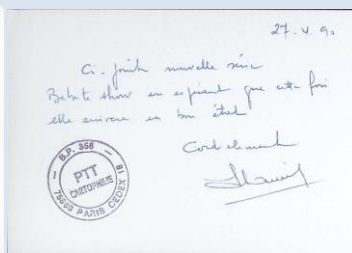 27-4 90
Ci-joint nouvelle série
Bebête show en espérant que cette fois
elle arrivera en bon état
Cordialement
B.P. 358 - 18
PTT
CARTOPHILIE
75663 PARIS CEDEX